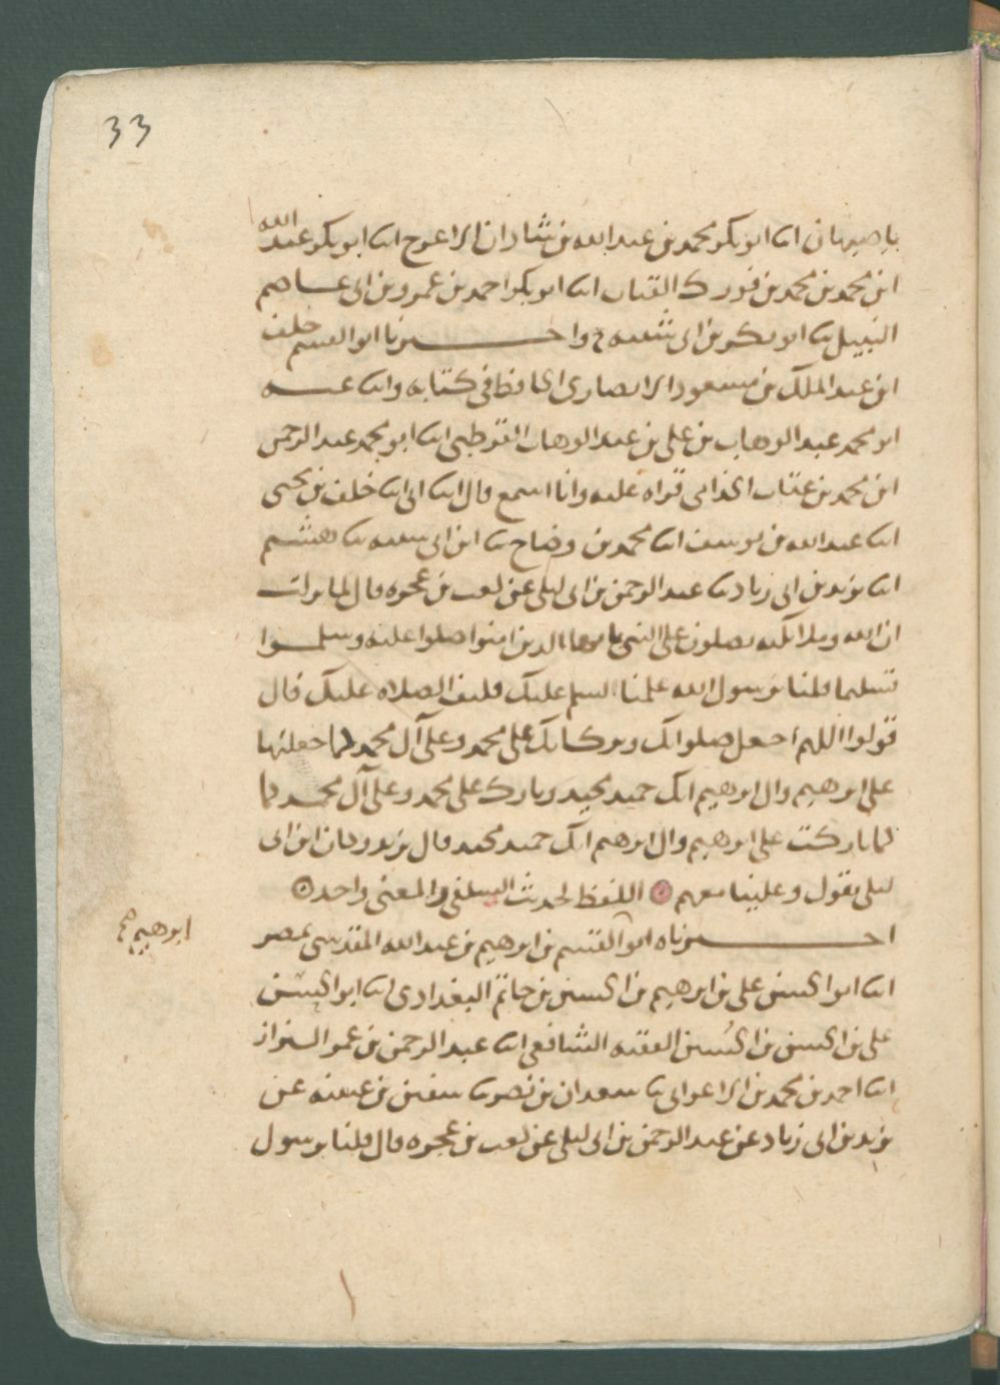 33
باصبهان انا ابو بكر محمد بن عبد الله بن شاذان الاعرج انا ابو بكر عبد الله
ابن محمد بن محمد بن فورك القباب انا ابو بكر احمد بن عمرو بن ابي عاصم
النبيل نا ابو بكر بن ابي شيبه ح واخبرنا ابو القسم خلف
ابن عبد الملك بن مسعود الانصاري الحافظ في كتابه وانا عنه
ابو محمد عبد الوهاب بن علي بن عبد الوهاب القرطبي انا ابو محمد عبد الرحمن
ابن محمد بن عتاب الجذامي قراه عليه وانا اسمع قال انا ابي انا خلف بن يحيى
انا عبد الله بن يوسف انا محمد بن وضاح نا ابن ابي شيبه نا هشيم
انا يزيد بن ابي زياد نا عبد الرحمن بن ابي ليلى عن كعب بن عجره قال لما نزلت
ان الله وملائكته يصلون على النبي يا ايها الذين امنوا صلوا عليه وسلموا
تسليما قلنا يرسول الله علمنا السلم عليك فكيف الصلاه عليك قال
قولوا اللهم اجعل صلواتك وبركاتك على محمد وعلى آل محمد كما جعلتها
على ابرهيم وال ابرهيم انك حميد مجيد وبارك على محمد وعلى آل محمد كما
كما باركت على ابرهيم وال ابرهيم انك حميد مجيد قال يزيد وكان ابن ابي
ليلى يقول وعلينا معهم اللفظ لحديث السلفي والمعنى واحد
اخبرناه ابو القسم بن ابرهيم بن عبد الله المقدسي بمصر
ابرهيم
انا ابو الحسن علي بن ابرهيم بن الحسن بن حاتم البغدادي انا ابو الحسن
علي بن الحسن بن الحسين الفقيه الشافعي انا عبد الرحمن بن عمر البزاز
انا احمد بن محمد بن الاعرابي نا سعدان بن نصر نا سفين بن عيينه عن
يزيد بن ابي زياد عن عبد الرحمن بن ابي ليلى عن كعب بن عجره قال قلنا يرسول